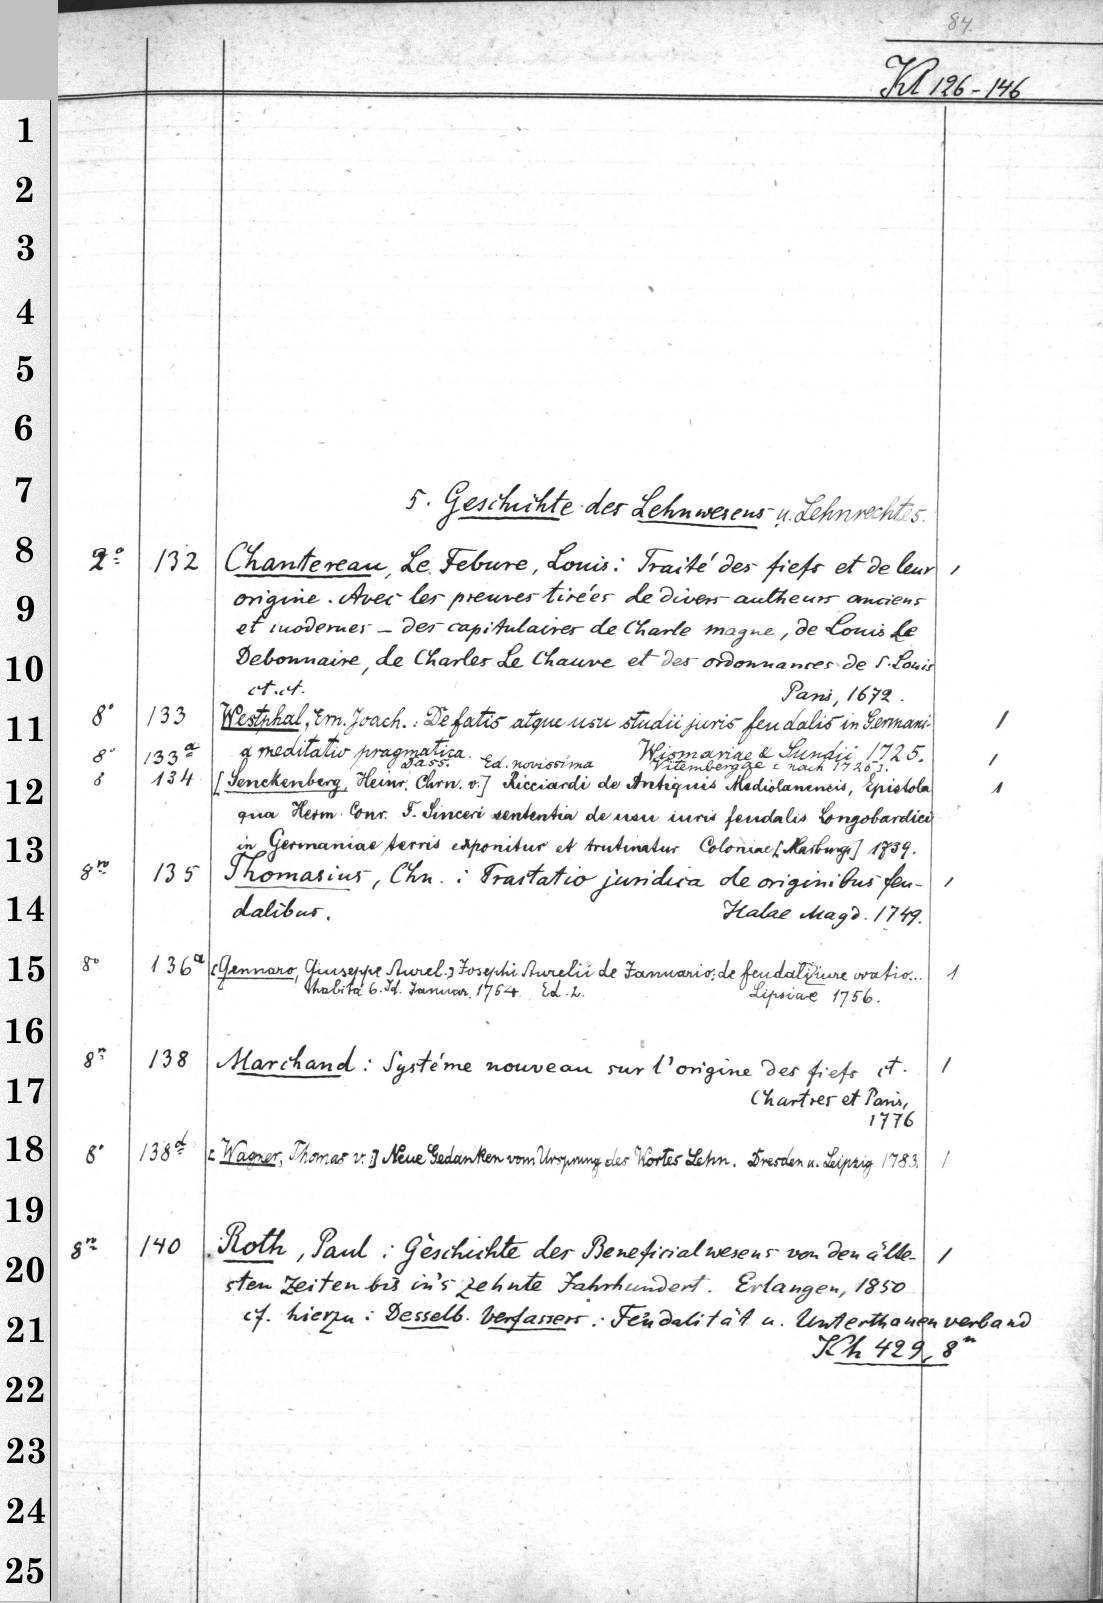 84.
Kl 126-146
1
2
3
4
5
6
7
5. Geschichte des Lehnwesens u. Lehnrechtes.
8
2° 132 Chantereau, Le Febure, Louis: Traité des fiefs et de leur 1
9
origine. Avec les preuves tirées de divers autheurs anciens
et modernes - des capitulaires de Charle magne, de Louis Le
10
Debonnaire, de Charles Le Chauve et des ordonnances de S. Louis
ct. ct. Paris, 1672.
11
8° 133 Westphal, Em. Joach.: De fatis atque usu studii juris feudalis in Germani- 1
a meditatio pragmatica. Wismariae & Sundii 1725.
8° 133a Dass. Ed. novissima Vitembergae [nach 1726]. 1
12
8 134 [Senckenberg, Heinr. Chrn. v.] Ricciardi de Antiquis Mediolanensis, Epistola 1
qua Herm. Conr. F. Sinceri sententia de usu iuris feudalis Longobardici
13
in Germaniae terris exponitur et trutinatur Coloniae [Marburg] 1739.
8n 135 Thomasius, Chn.: Tractatio juridica de originibus feu- 1
14
dalibus. Halae Magd. 1749.
15
8° 136a [Gennaro, Giuseppe Aurel.] Josephi Aurelii de Januario: de feudali iure oratio... 1
habita 6. Id. Januar. 1754. Ed. 2. Lipsiae 1756.
16
8n 138 Marchand: Systéme nouveau sur l'origine des fiefs ct. 1
17
Chartres et Paris,
1776
18
8° 138d [Wagner, Thomas v.:] Neue Gedanken vom Ursprung des Wortes Lehn. Dresden u. Leipzig 1783. 1
19
8n 140 Roth, Paul: Geschichte des Beneficialwesens von den älte- 1
20
sten Zeiten bis in's zehnte Jahrhundert. Erlangen, 1850
21
cf. hierzu: Desselb. Verfassers: Feudalität u. Unterthanenverband
Kh 429, 8n
22
23
24
25